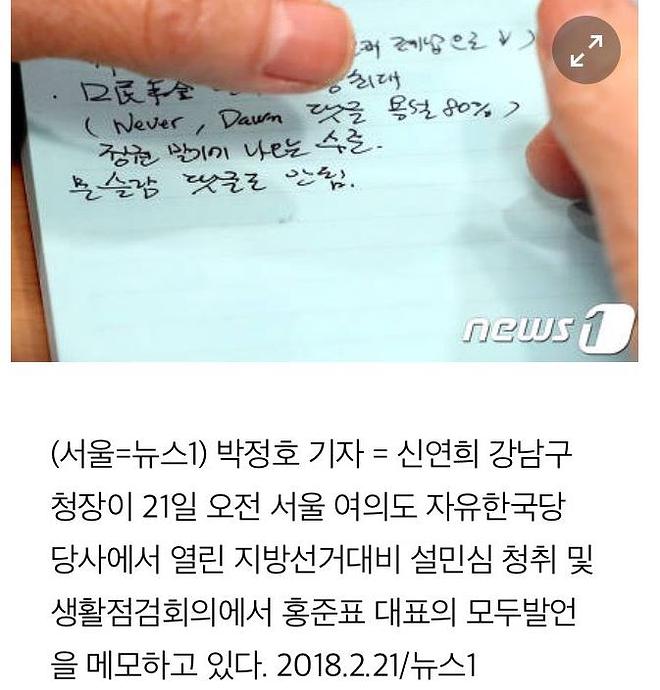 으로 ↓ )
최대
( Never, Dawn 댓글 욕설 80% )
정권 말기에 나오는 수준.
댓글로 안됨.
news1
(서울=뉴스1) 박정호 기자 = 신연희 강남구
청장이 21일 오전 서울 여의도 자유한국당
당사에서 열린 지방선거대비 설민심 청취 및
생활점검회의에서 홍준표 대표의 모두발언
을 메모하고 있다. 2018.2.21/뉴스1